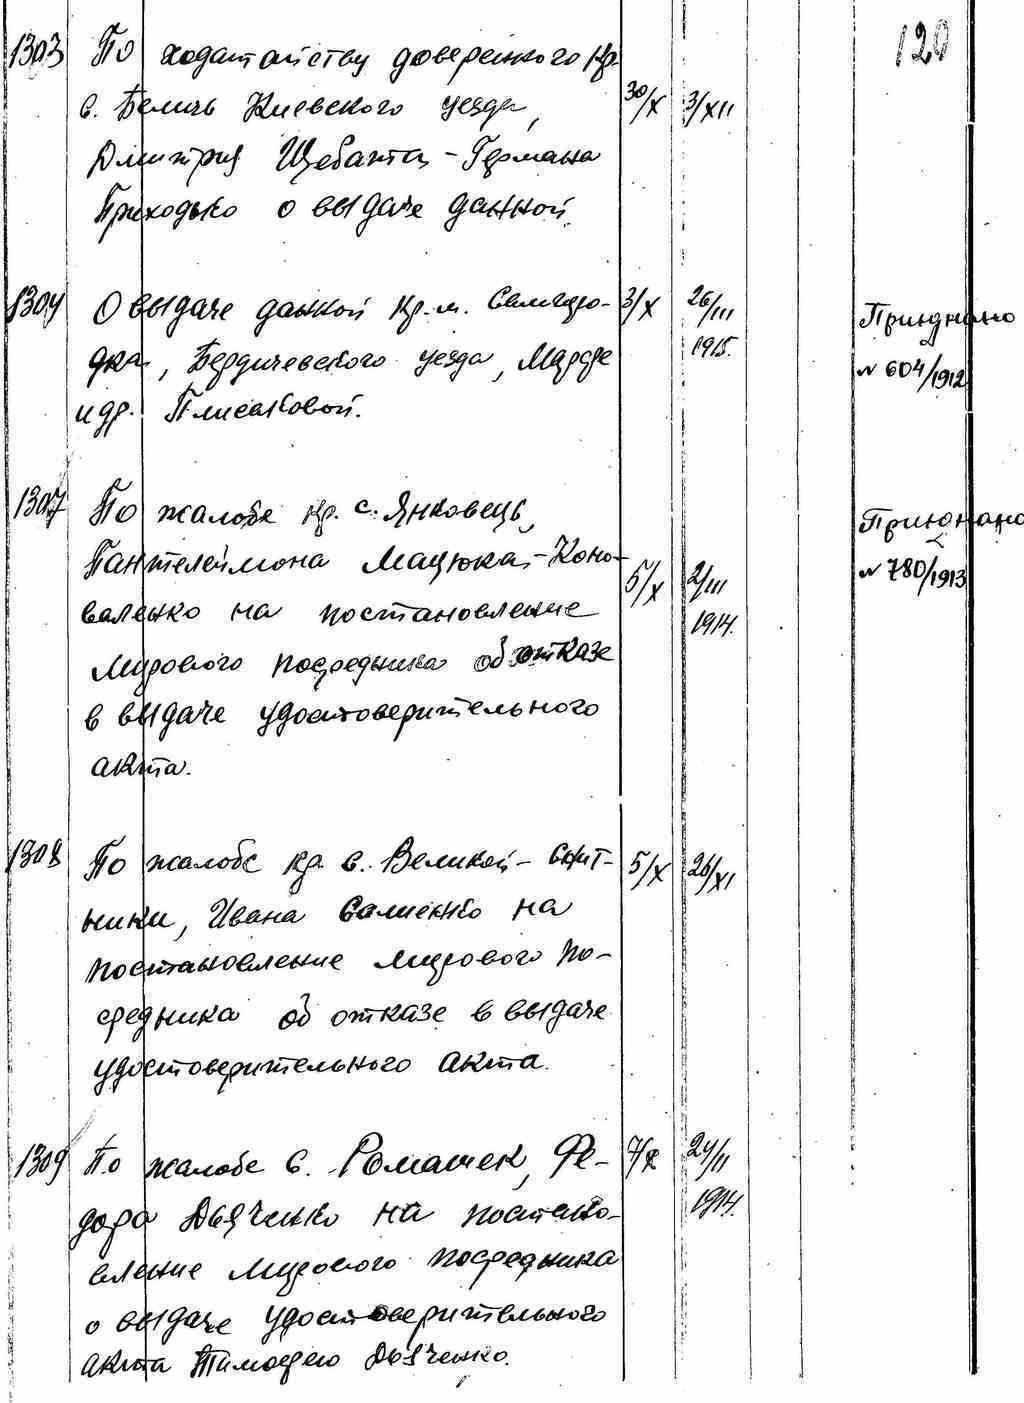 120
1303 По ходатайству доверенного кр.
с. Беличь Киевского уезда, 30/X 3/XII
Дмитрия Щебанта - Германа
Приходько о выдаче данной.
1304 О выдаче данной кр. м. Самгоро- 3/X 26/III
дка, Бердичевского уезда, Марфе 1915.
и др. Плисаковой.
Приднано
№ 604/1912
1307 По жалобе кр. с. Янковець,
Пантелеймона Мацюка - Коно-
валенко на постановление 5/X 2/III
Мирового посредника об отказе 1914.
в выдаче удостоверительного
акта.
Приюнано
№ 780/1913
1308 По жалобе кр. с. Великой - Снит- 5/X 26/XI
ынки, Ивана Салиенко на
постановление мирового по-
средника об отказе в выдаче
удостоверительного акта.
1309 По жалобе с. Ромашек, Фе- 7/X 24/II
дора Дьяченко на постано- 1914.
вление мирового посредника
о выдаче удостоверительного
акта Тимофею Дьяченко.